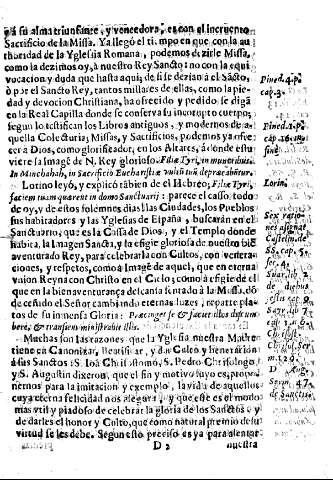 y à su alma triunfante, y vencedora, es con el incruento
Sacrificio de la Missa. Ya llegó el tiempo en que con la au-
thoridad de la Yglesia Romana, podemos dezirle Missa,
como la dezimos oy, à nuestro Rey Sancto: no con la equi
vocacion y duda que hasta aqui, de si se dezian al Sãcto,
ò por el Sancto Rey, tantos millares de ellas, como la pie-
dad y devocion Christiana, ha ofrecido y pedido se digã
en la Real Capilla donde se conserva su incorupto cuerpo;
segun lo testifican los Libros antiguos, y modernos de a-
quella Colecturia; Missas, y Sacrificios, podemos ya ofre-
cer à Dios, como glorificador, en los Altares, à donde estu
viere la Image de N. Rey glorioso. Filiæ Tyri, in muneribus.
In Minchahah, in Sacrificio Eucharistiæ vultũ tuũ depræcabũtur.
Lotino leyó, y explicó tãbien de el Hebreo; Filiæ Tyri,
faciem tuam quærent in domo Sanctuarij: parece el caso: todo
de oy, y de estos solemnes dias las Ciudades, los Pueblos
sus habitadores y las Yglesias de España, buscarán en el
Sanctuario, que es la Cassa de Dios, y el Templo donde
habita, la Imagen Sancta, y la efigie gloriosa de nuestro biẽ
aventurado Rey, para celebrarla con Cultos, con venera-
ciones, y respetos, como à Imagẽ de aquel, que en eterna
vnion Reyna con Christo en el Cielo; como à efigie de el
que en la bien aventurança de canta sentado à la Missa, dõ-
de ceñido el Señor cambiando eternas luzes, reparte pla-
tos de su inmensa Gloria: Præcinget se & faciet illos discum
bere, & transiens ministrabit illis.
Muchas son las razones que la Yglesia nuestra Madre
tiene en Canonizar, Beatificar, y dar Culto y beneracion
à sus Sanctos: S. Ioã Chrisostomo, S. Pedro Chrisologo, y
S. Augustin dixeron, que el fin y motivo suyo es, propo-
nernos para la imitacion y exemplo, la vida de aquellos
cuya eterna felicidad nos alegra, y que este es el modo
mas vtil y piadoso de celebrar la gloria de los Sanctos, y
de darles el honor y Culto, que como natural premio de su
virtud se les debe. Segun esto preciso es ya para alentar
D 2 nuestra
Pined. 4. p.
cap. 3.
Pined. 1. p.
fine
Lorin.
Sex ratio-
nes assignat
SS. cap.
5.
de
cap.
D. Aug.
Serm. 47.
de Sanctis.